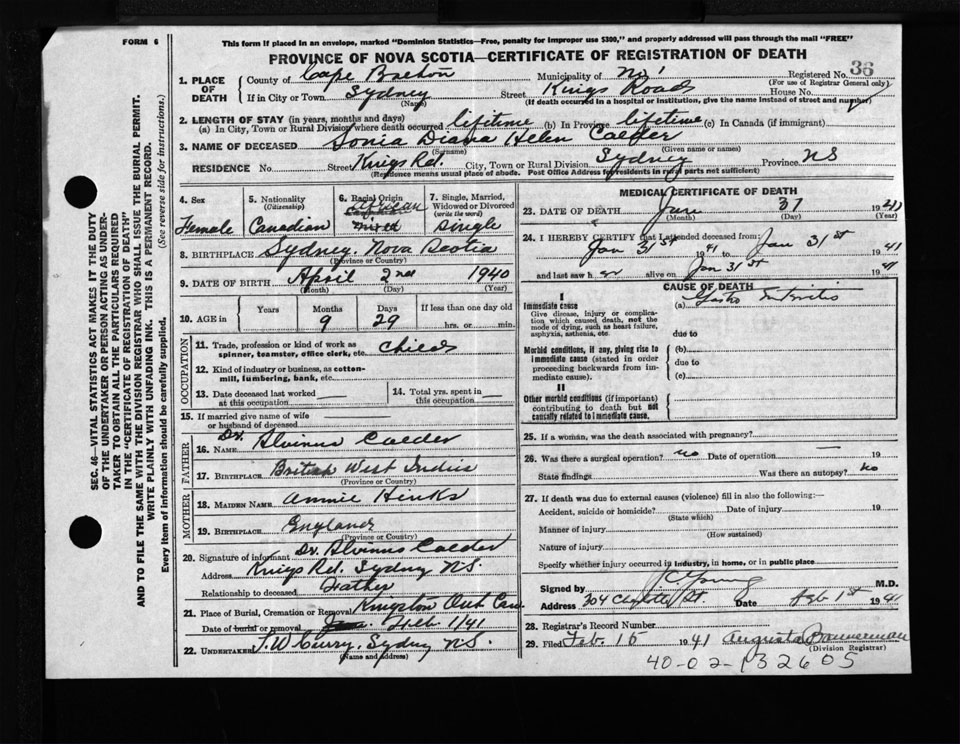 FORM 6
This form if placed in an envelope, marked "Dominion Statistics—Free, penalty for improper use $300," and properly addressed will pass through the mail "FREE"
PROVINCE OF NOVA SCOTIA—CERTIFICATE OF REGISTRATION OF DEATH
1. PLACE OF DEATH County of Cape Breton Municipality of Registered No. 36
(For use of Registrar General only)
If in City or Town Sydney Street Kings Road House No.
(Name) (If death occurred in a hospital or institution, give the name instead of street and number)
2. LENGTH OF STAY (in years, months and days)
(a) In City, Town or Rural Division where death occurred lifetime (b) In Province lifetime (c) In Canada (if immigrant)
3. NAME OF DECEASED Sonia Diana Helen Calder
(Surname) (Given name or names)
RESIDENCE No. Street Kings Rd. City, Town or Rural Division Sydney Province NS
(Residence means usual place of abode. Post Office Address for residents in rural parts not sufficient)
4. Sex Female
5. Nationality (Citizenship) Canadian
6. Racial Origin African mixed
7. Single, Married, Widowed or Divorced (write the word) Single
8. BIRTHPLACE Sydney, Nova Scotia
(Province or Country)
9. DATE OF BIRTH April 2nd 1940
(Month) (Day) (Year)
10. AGE in Years Months 9 Days 29 If less than one day old hrs. or min.
OCCUPATION
11. Trade, profession or kind of work as spinner, teamster, office clerk, etc. Child
12. Kind of industry or business, as cotton-mill, lumbering, bank, etc.
13. Date deceased last worked at this occupation
14. Total yrs. spent in this occupation
15. If married give name of wife or husband of deceased
FATHER
16. NAME Dr. Alvinus Calder
17. BIRTHPLACE British West Indies
(Province or Country)
MOTHER
18. MAIDEN NAME Annie Hinks
19. BIRTHPLACE England
(Province or Country)
20. Signature of informant Dr. Alvinus Calder
Address Kings Rd. Sydney NS.
Relationship to deceased Father
21. Place of Burial, Cremation or Removal Kingston Ont Can.
Date of burial or removal Feb 1/41
22. UNDERTAKER T.W. Curry, Sydney NS.
(Name and address)
MEDICAL CERTIFICATE OF DEATH
23. DATE OF DEATH Jan 31 1941
(Month) (Day) (Year)
24. I HEREBY CERTIFY that I attended deceased from:
Jan 31st 1941 to Jan 31st 1941
and last saw her alive on Jan 31st 1941
CAUSE OF DEATH
I
Immediate cause
Give disease, injury or complication which caused death, not the mode of dying, such as heart failure, asphyxia, asthenia, etc.
(a) Gastro Enteritis
due to
Morbid conditions, if any, giving rise to immediate cause (stated in order proceeding backwards from immediate cause).
(b)
due to
(c)
II
Other morbid conditions (if important) contributing to death but not causally related to immediate cause.
25. If a woman, was the death associated with pregnancy?
26. Was there a surgical operation? no Date of operation — 19
State findings Was there an autopsy? No
27. If death was due to external causes (violence) fill in also the following:—
Accident, suicide or homicide? Date of injury 19
(State which)
Manner of injury
(How sustained)
Nature of injury
Specify whether injury occurred in industry, in home, or in public place
Signed by Young M.D.
Address 204 St. Date Feb 1st 1941
28. Registrar's Record Number
29. Filed Feb. 15 1941 Augusta Bannerman
(Division Registrar)
40-02-132605
SEC. 46—VITAL STATISTICS ACT MAKES IT THE DUTY
OF THE UNDERTAKER OR PERSON ACTING AS UNDERTAKER TO OBTAIN ALL THE PARTICULARS REQUIRED
IN THE "CERTIFICATE OF REGISTRATION OF DEATH"
AND TO FILE THE SAME WITH THE DIVISION REGISTRAR WHO SHALL ISSUE THE BURIAL PERMIT.
WRITE PLAINLY WITH UNFADING INK. THIS IS A PERMANENT RECORD.
Every item of information should be carefully supplied. (See reverse side for instructions.)